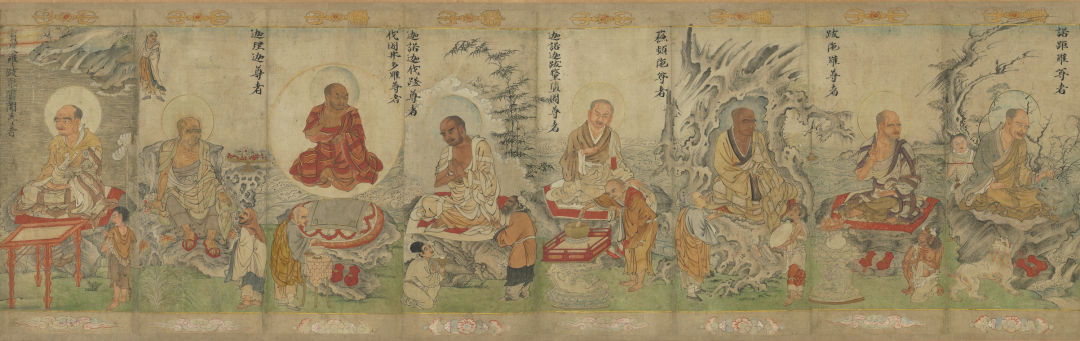 諾距羅尊者
跋陁羅尊者
蘇頻陁尊者
迦諾迦跋釐墮闍尊者
迦諾迦伐蹉尊者
伐闍弗多羅尊者
迦理迦尊者
羅跋 墮闍尊者